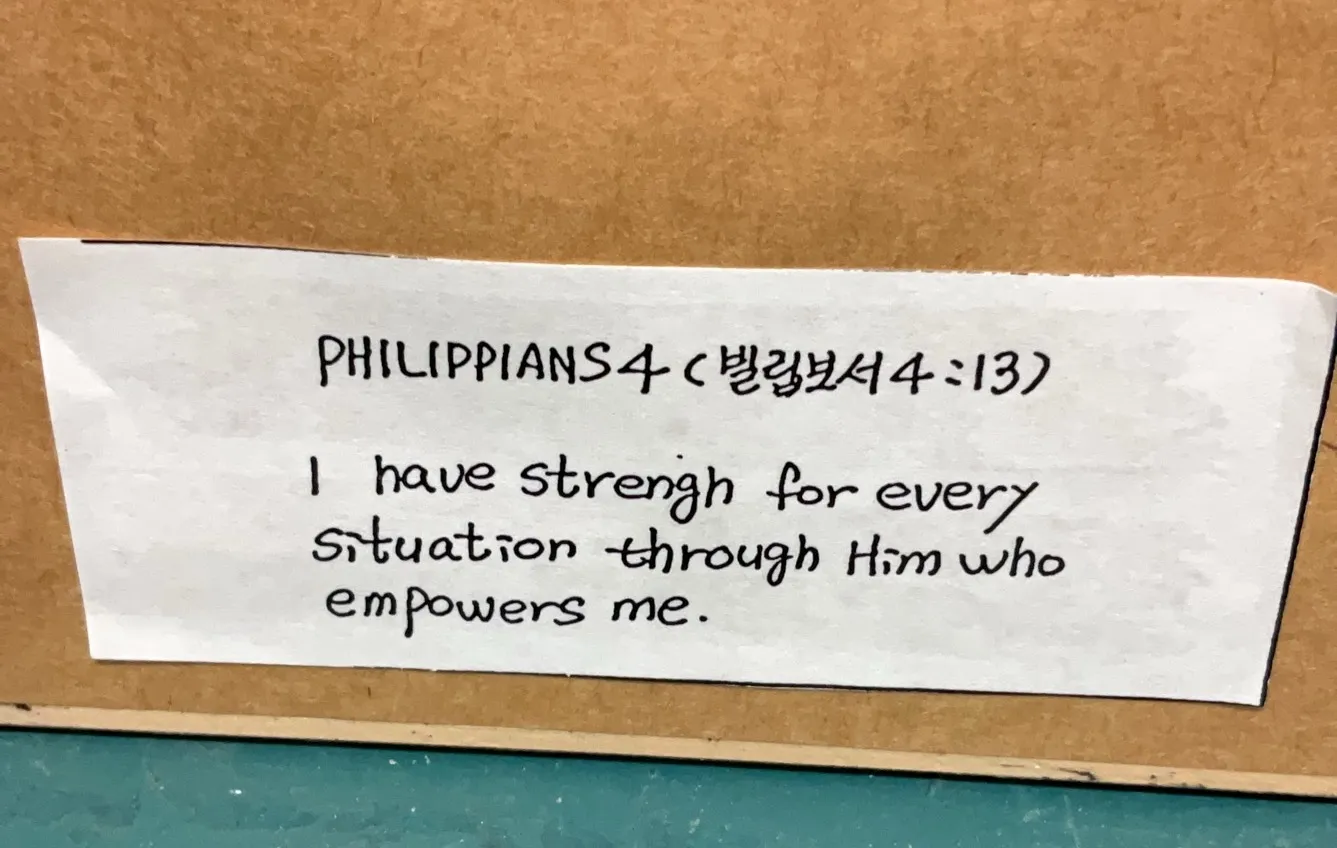 PHILIPPIANS 4 (빌립보서 4:13)
I have strengh for every
situation through Him who
empowers me.